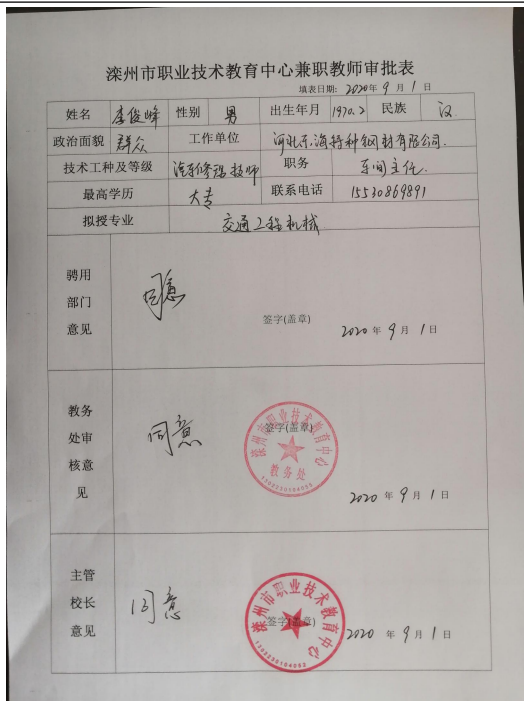 滦州市职业技术教育中心兼职教师审批表
填表日期：2020年 9 月 1 日
姓名 李俊峰 性别 男 出生年月 1970.2 民族 汉
政治面貌 群众 工作单位 河北东海特种钢材有限公司.
技术工种及等级 汽车修理技师 职务 车间主任.
最高学历 大专 联系电话 15530869891
拟授专业 交通工程机械
骋用
部门
意见
同意
签字(盖章)
2020 年 9 月 1 日
教务
处审
核意
见
同意
签字(盖章)
滦州市职业技术教育中心
教务处
2020 年 9 月 1 日
主管
校长
意见
同意
签字(盖章)
滦州市职业技术教育中心
2020 年 9 月 1 日